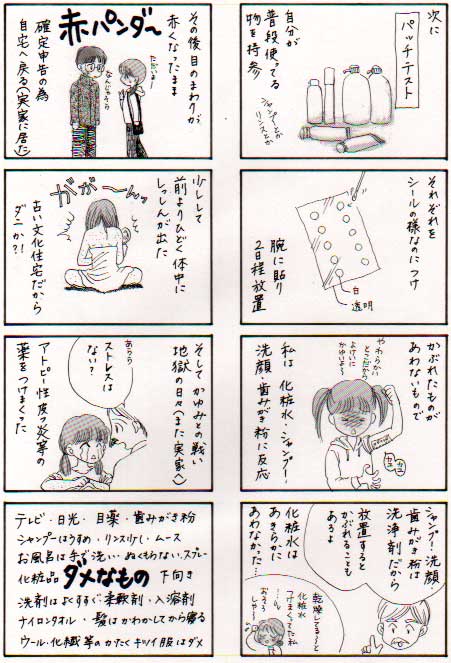 次に
パッチテスト
自分が
普段使ってる
物を持参
シャンプーとか
リンスとか
それぞれを
シールの様なのにつけ
腕に貼り
2日程放置
白
透明
かぶれたものが
あわないもので
やわらかい
とこだから
よけいに
かゆいよ〜
カユ
カユ
私は 化粧水・シャンプー
洗顔・歯みがき粉に反応
シャンプー・洗顔・
歯みがき粉は
洗浄剤だから
放置すると
かぶれることも
あるよ
化粧水は
あきらかに
あわなかった…
乾燥してる〜と
化粧水
つけまくってた私
おそろ
しや〜
その後目のまわりが、
赤くなったまま
赤パンダ〜
ただいま
なんじゃそら
確定申告の為
自宅へ戻る(実家に居た)
少しして
前よりひどく体中に
しっしんが出た
ガガ〜ンッ
古い文化住宅だから
ダニか?!
そしてかゆみとの戦い
地獄の日々(また実家)
あらら
ストレスは
ない?
アトピー性皮フ炎等の
薬をつけまくった
テレビ・日光・目薬・歯みがき粉
シャンプーはうすめ・リンス少し・ムース
お風呂は手で洗い・ぬくもらない・スプレー
化粧品 ダメなもの 下向き
洗剤はよくすすぐ・柔軟剤・入溶剤
ナイロンタオル・髪はかわかしてから寝る
ウール・化繊等のかたくキツイ服はダメ